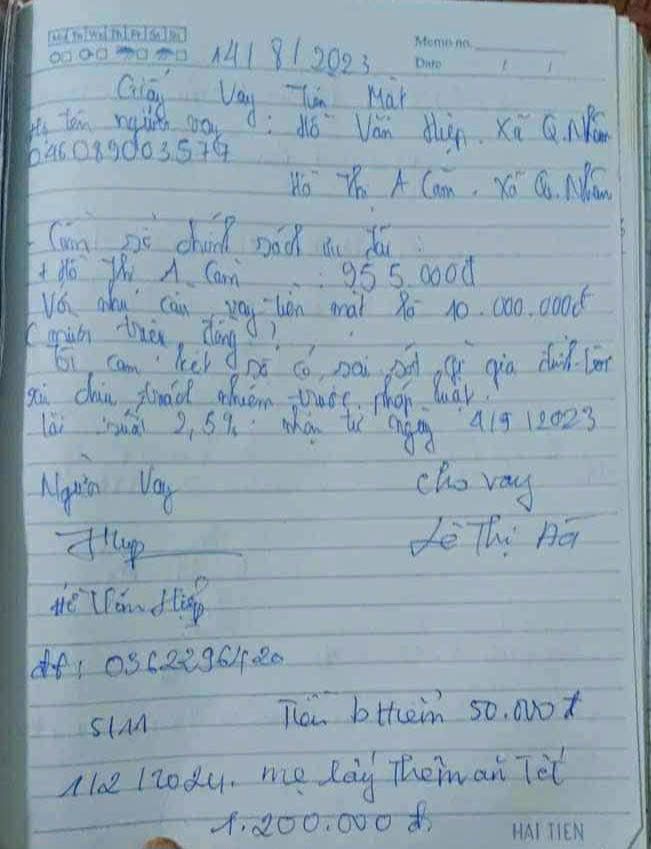 Mo Tu We Th Fr Sa Su
Memo no.
Date / /
14/8/2023
Giấy Vay Tiền Mặt
Họ tên người vay : Hồ Văn Hiệp. Xã Q. Nhâm
046089003579
Hồ Thị A Cam. Xã Q. Nhâm
- Cầm sổ chính sách ưu đãi :
+ Hồ Thị A Cam : 955.000đ
Với nhu cầu vay tiền mặt là 10.000.000đ
( mười triệu đồng )
Tôi cam kết sổ có sai sót gì gia đình tôi
xin chịu trách nhiệm trước pháp luật.
lãi suất 2,5% : nhận từ ngày 4/9/2023
Người Vay
cho vay
Lê Thị
Hồ Văn Hiệp
đt : 0362296420
5/11 Tiền b Hiểm 50.000đ
1/2/2024. mẹ lấy thêm ăn Tết
1.200.000đ
HAI TIEN